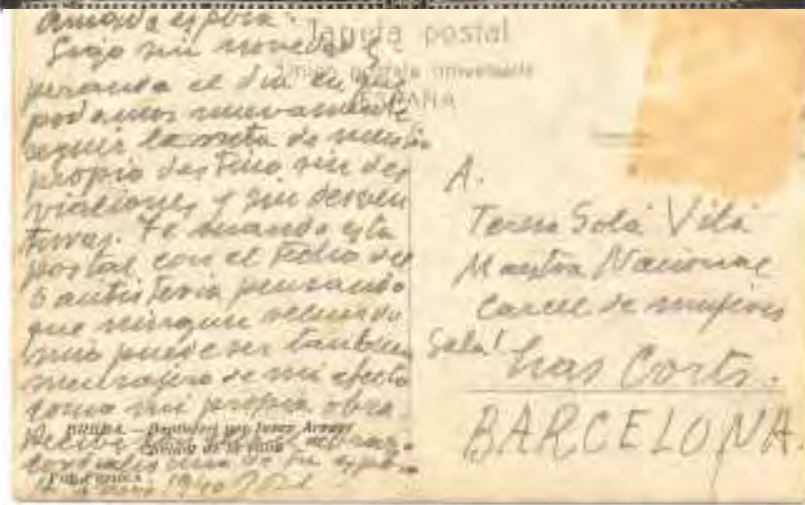 Amada esposa.
Sigo sin novedad es-
perando el día en que
podamos nuevamente
seguir la meta de nuestro
propio destino sin des
viaciones y sin desven
turas. Te mando esta
postal con el techo del
Bautisterio pensando
que ningun recuerdo
mio puede ser tan buen
mensajero de mi afecto
como mi propia obra.
Recibe
cordiales de tu esposo
1940
Tarjeta postal
ESPAÑA
A.
Teresa Solá Vilá
Maestra Nacional
Carcel de mujeres
Sala 1
Las Corts.
BARCELONA.